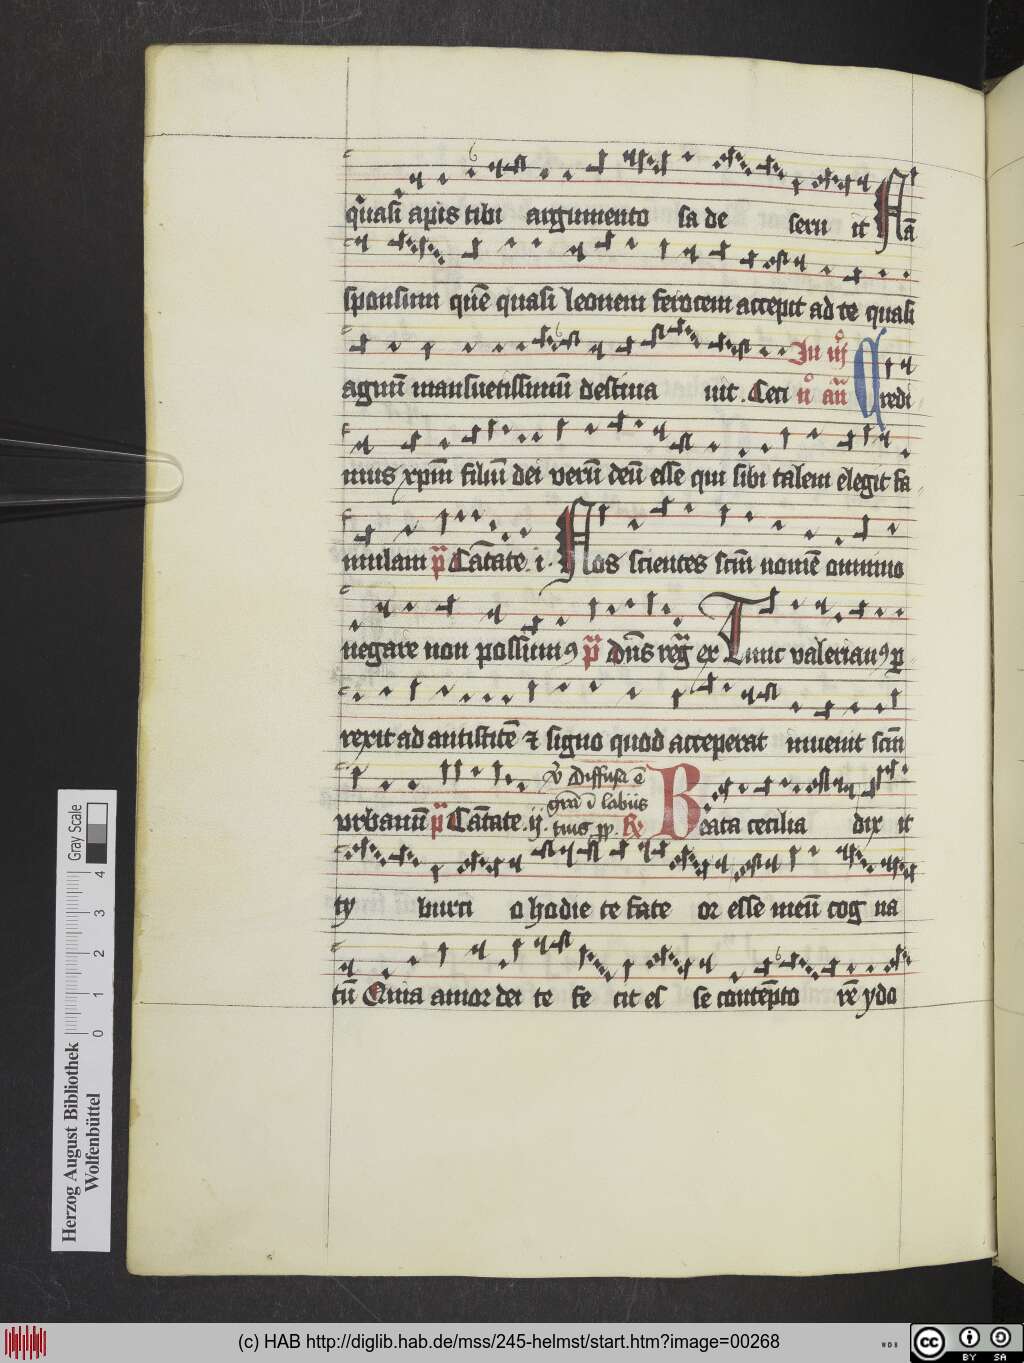 quasi apis tibi argumento sa de seru it Nā
sponsum quē quasi leonem ferocem accepit ad te quasi
agnū mansuetissimū destina uit. Ceci
In iijº
nº añ Credi
mus xp̄m filiū dei verū deū esse qui sibi talem elegit fa
mulam p̄ Cātate .i. Nos scientes scm̄ nomē omnino
negare non possumꝰ p̄ Dn̄s reg̅ ex Tunc valerianꝰ ꝑ
rexit ad antistitē ⁊ signo quod acceperat inuenit scm̄
v̊ Diffusa ē
gr̄a ī labiis
vrbanū p̄ Cātate .ij. tuis ꝓp. R̸ Beata cecilia dix it
ty burci o hodie te fate or esse meū cog na
tū Quia amor dei te fe cit es se contēpto rē ydo
Herzog August Bibliothek
Wolfenbüttel
Gray Scale
0 1 2 3 4
(c) HAB http://diglib.hab.de/mss/245-helmst/start.htm?image=00268
WDB
cc BY SA